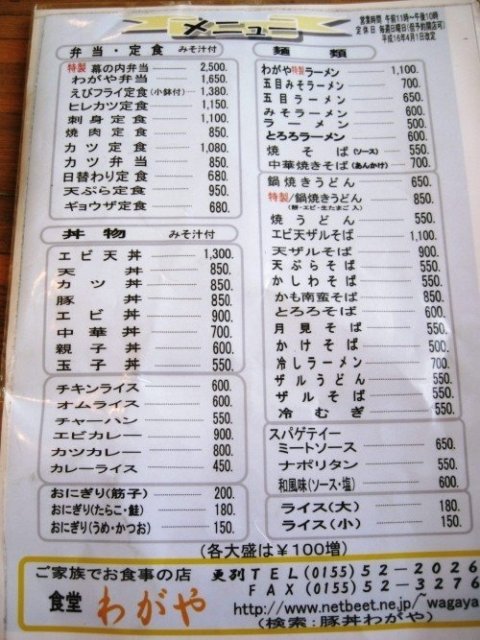 メニュー
営業時間 午前11時～午後10時
定休日 毎週日曜日(但予約開店可)
平成16年4月1日改定
弁当・定食 みそ汁付
特製 幕の内弁当 2,500.
わがや弁当 1,650.
えびフライ定食(小鉢付) 1,380.
ヒレカツ定食 1,150.
刺身定食 1,100.
焼肉定食 850.
カツ定食 1,080.
カツ弁当 850.
日替わり定食 680.
天ぷら定食 950.
ギョウザ定食 680.
丼物 みそ汁付
エビ天丼 1,300.
天丼 850.
カツ丼 850.
豚丼 850.
エビ丼 900.
中華丼 700.
親子丼 600.
玉子丼 550.
チキンライス 600.
オムライス 600.
チャーハン 550.
エビカレー 900.
カツカレー 800.
カレーライス 450.
おにぎり(筋子) 200.
おにぎり(たらこ・鮭) 180.
おにぎり(うめ・かつお) 150.
麺類
わがや特製ラーメン 1,100.
五目みそラーメン 700.
五目ラーメン 650.
みそラーメン 600.
ラーメン 500.
とろろラーメン 600.
焼そば(ソース) 550.
中華焼きそば(あんかけ) 700.
鍋焼きうどん 650.
特製/鍋焼きうどん 850.
(餅・エビ・生たまご入)
焼うどん 550.
エビ天ザルそば 1,100.
天ザルそば 900.
天ぷらそば 550.
かしわそば 550.
かも南蛮そば 850.
とろろそば 600.
月見そば 550.
かけそば 500.
冷しラーメン 700.
ザルうどん 550.
ザルそば 550.
冷むぎ 550.
スパゲテイー
ミートソース 650.
ナポリタン 550.
和風味(ソース・塩) 600.
ライス(大) 180.
ライス(小) 150.
(各大盛は￥100増)
ご家族でお食事の店
食堂 わがや
更別TEL(0155)52-2026
FAX(0155)52-3276
http://www.netbeet.ne.jp/~wagaya
(検索:豚丼わがや)